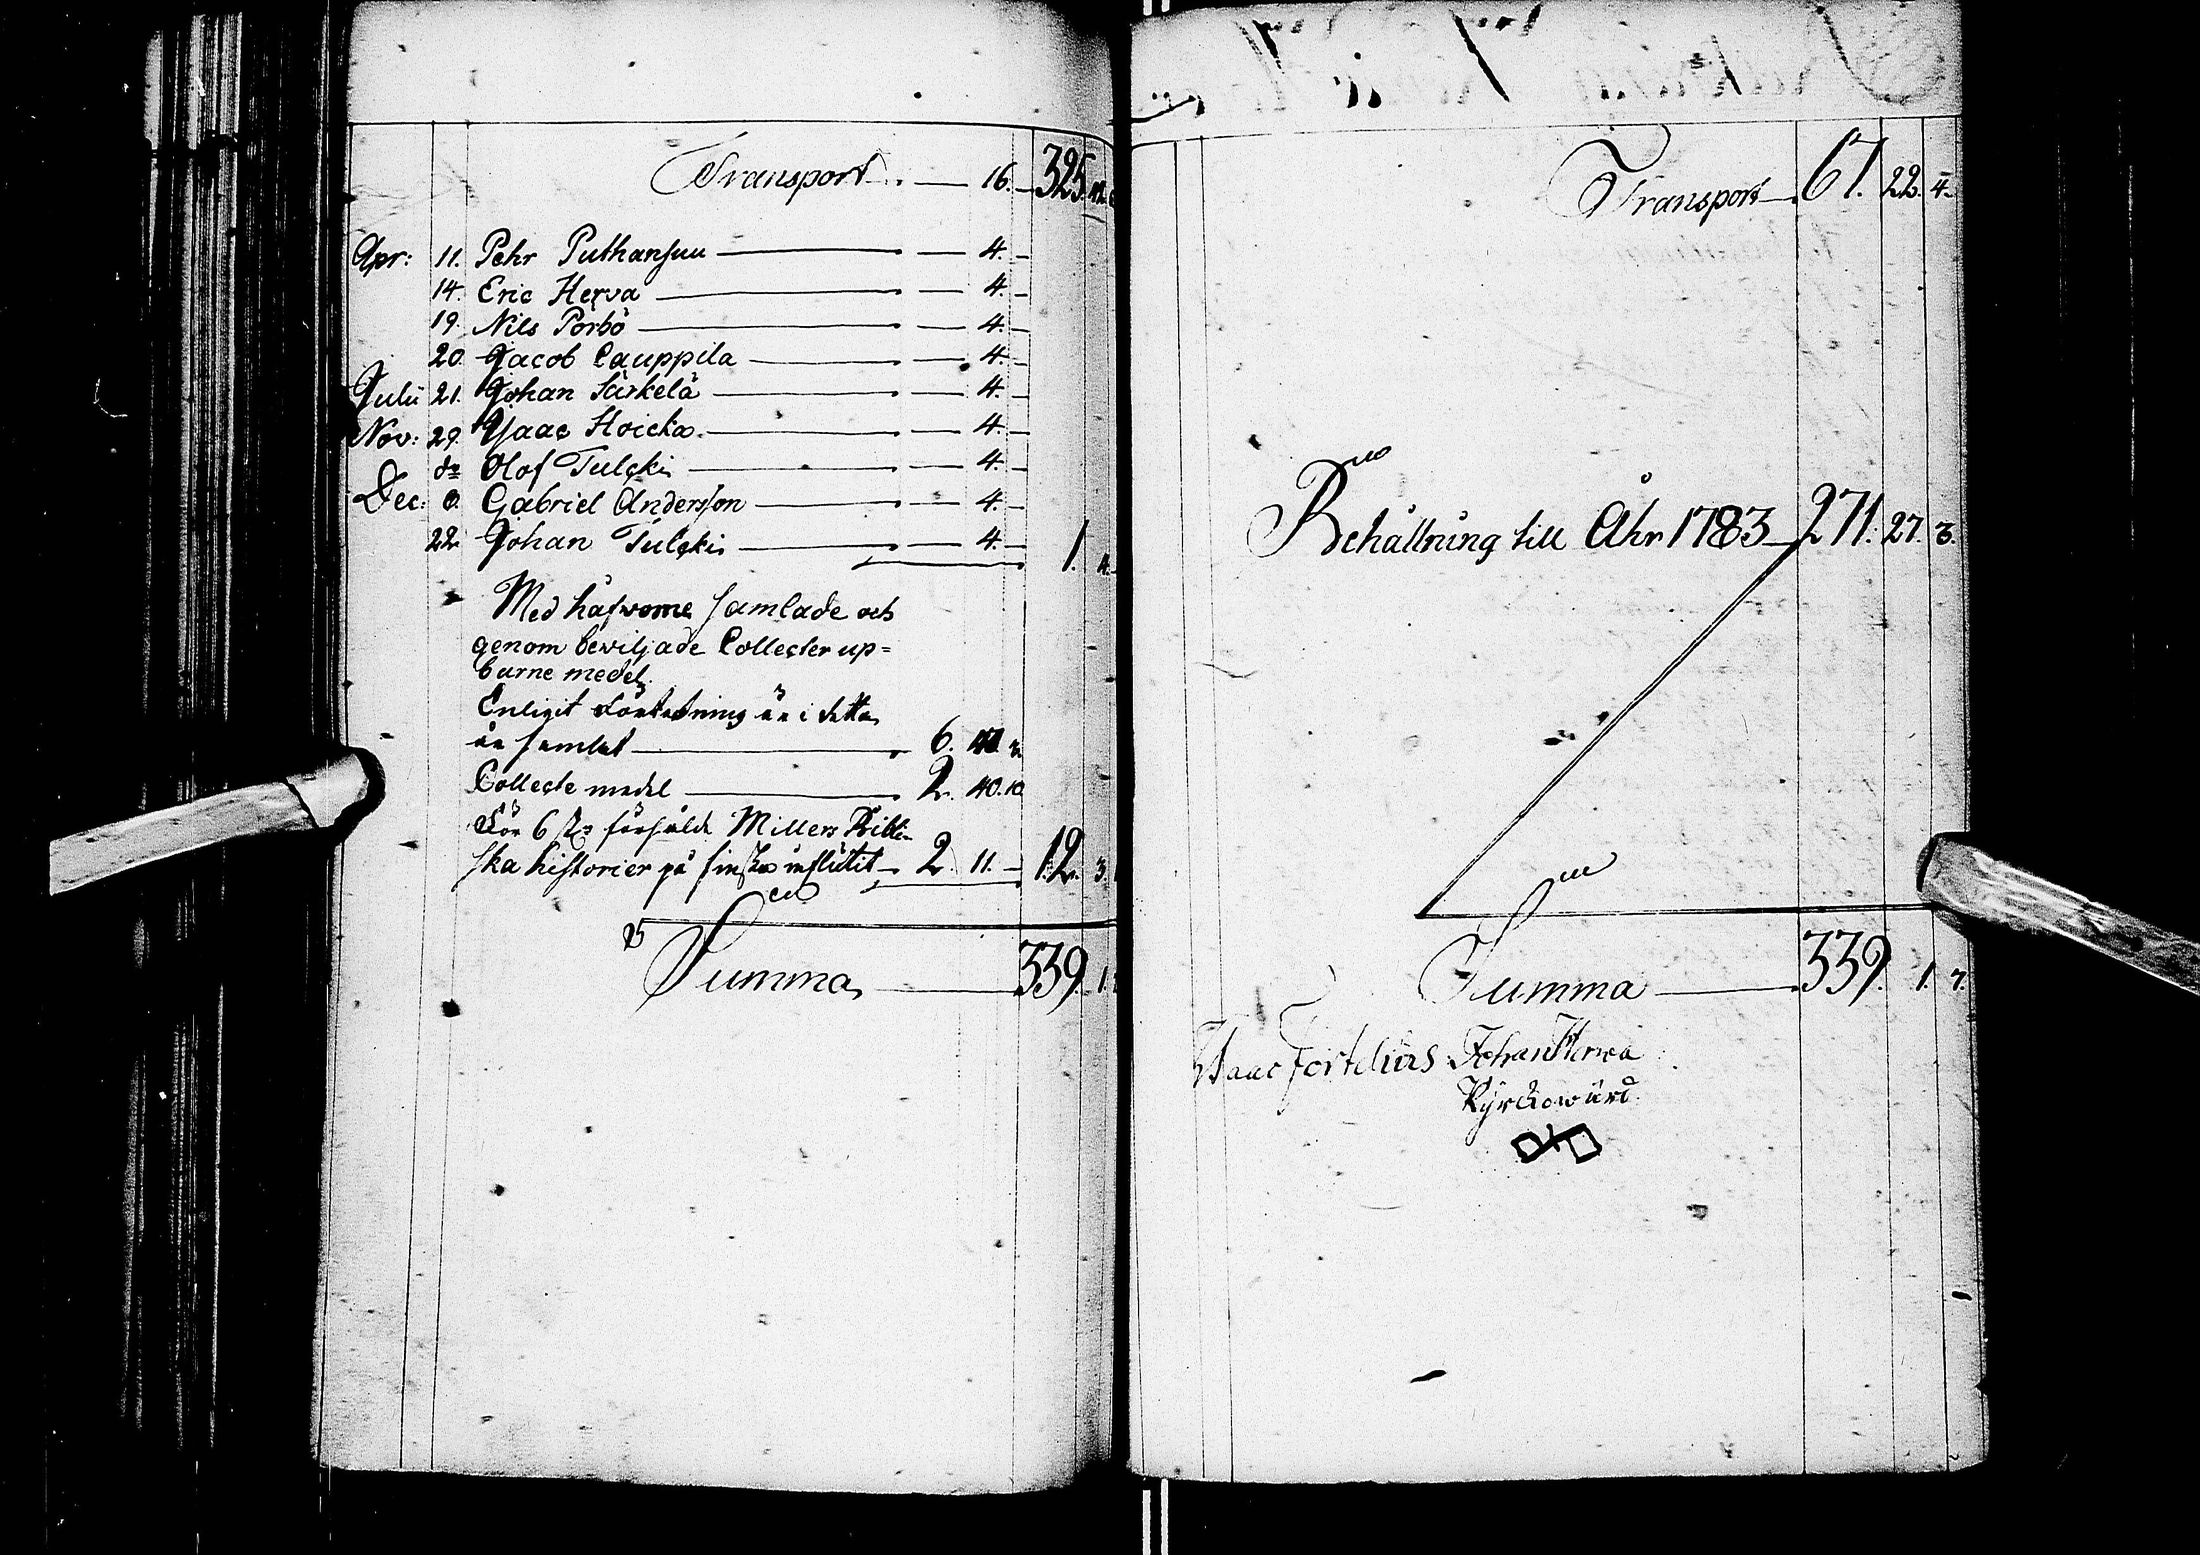 Transport — 16. — 325.
Apr: 11. Pehr Puthansuu — 4. —
14. Eric Herva — 4. —
19. Nils Pörbö — 4. —
20. Jacob Cauppila — 4. —
Julii 21. Johan Särkelä — 4. —
Nov: 29. Ysaac Hoicka — 4. —
do Olof Tulcki — 4. —
Dec: 8. Gabriel Andersson — 4. —
22. Johan Tulcki — 4. — 1. 4.
Med håfvorne samlade och
genom beviljade Collecter up=
burne medel.
Enligit Förteckning är i detta
år samlat — 6.
Collecte medel — 2. 40. 10
För 6 st: försålde Millers Bibli-
ska historier på finska influtit — 2. 11. — 12. 3.
Summa — 339. 1.
Transport — 67. 22. 4.
Behållning till Åhr 1783 — 271. 27. 3.
Summa — 339. 1. 7.
Ysaac Fortelius Johan Herva
Kyrckowärd